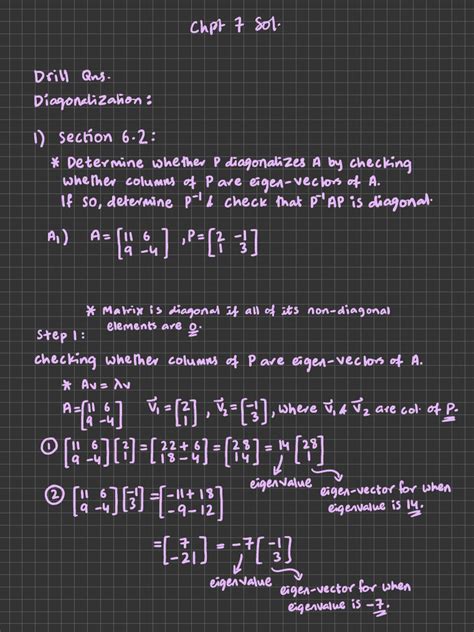 Chpt 7 Sol.
Drill Qns.
Diagonalization:
1) Section 6.2:
* Determine whether P diagonalizes A by checking
whether columns of P are eigen-vectors of A.
If so, determine P⁻¹ & check that P⁻¹AP is diagonal.
A₁) A = [11 6; 9 -4], P = [2 -1; 1 3]
* Matrix is diagonal if all of its non-diagonal
elements are 0.
Step 1:
checking whether columns of P are eigen-vectors of A.
* Av = λv
A = [11 6; 9 -4] v⃗₁ = [2; 1], v⃗₂ = [-1; 3], where v⃗₁ & v⃗₂ are col. of P.
① [11 6; 9 -4][2; 1] = [22+6; 18-4] = [28; 14] = 14[28; 1]
eigenvalue
eigen-vector for when
eigenvalue is 14.
② [11 6; 9 -4][-1; 3] = [-11+18; -9-12]
= [7; -21] = -7[-1; 3]
eigenvalue
eigen-vector for when
eigenvalue is -7.